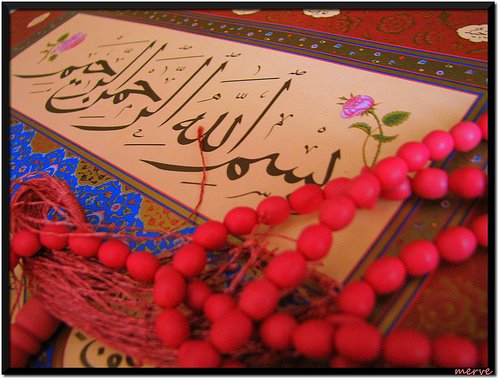 بسم الله الرحمن الرحيم
merve